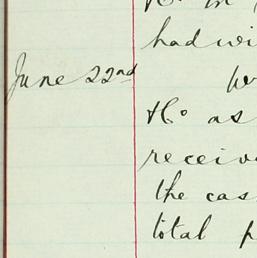 had wi
June 22nd
Ho as
receiv
the cas
total p